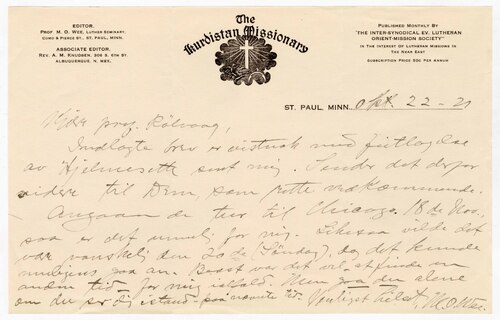 EDITOR.
PROF. M. O. WEE, LUTHER SEMINARY,
COMO & PIERCE ST., ST. PAUL, MINN.
ASSOCIATE EDITOR.
REV. A. M. KNUDSEN, 306 S. 6TH ST.
ALBUQUERQUE, N. MEX.
The
Kurdistan Missionary
PUBLISHED MONTHLY BY
"THE INTER-SYNODICAL EV. LUTHERAN
ORIENT-MISSION SOCIETY"
IN THE INTEREST OF LUTHERAN MISSIONS IN
THE NEAR EAST
SUBSCRIPTION PRICE 50C PER ANNUM
ST. PAUL, MINN. Okt. 22-21
Kjære prof. Rölvaag,
Indlagte brev er med
av Hjelmeseth sent mig. Sender det derfor
videre til Dem, som rette vedkommende.
Angaaende tur til Chicago 18de Nov.,
saa er det umulig for mig. Likesaa vilde det
være vanskelig den 20de (Söndag), dog det kunde
muligens gaa an. Bedst var det vel at finde en
anden tid for mig. Men gaa den alene
om du er istand paa nævnte tid. Venligst hilset, M. O. Wee.